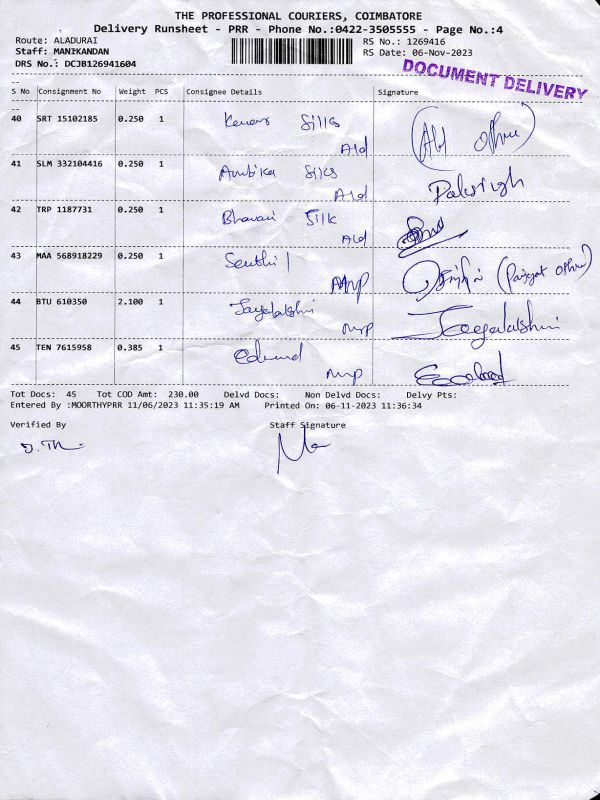 THE PROFESSIONAL COURIERS, COIMBATORE
Delivery Runsheet - PRR - Phone No.:0422-3505555 - Page No.:4
Route: ALADURAI RS No.: 1269416
Staff: MANIKANDAN RS Date: 06-Nov-2023
DRS No.: DCJB126941604
DOCUMENT DELIVERY
S No Consignment No Weight PCS Consignee Details Signature
40 SRT 15102185 0.250 1 Silks
Ald
41 SLM 332104416 0.250 1 Ambika Silks
Ald
42 TRP 1187731 0.250 1 Bhavani Silk
Ald
43 MAA 568918229 0.250 1 Senthil
44 BTU 610350 2.100 1 Jayalakshmi
45 TEN 7615958 0.385 1 Edmund
Tot Docs: 45 Tot COD Amt: 230.00 Delvd Docs: Non Delvd Docs: Delvy Pts:
Entered By :MOORTHYPRR 11/06/2023 11:35:19 AM Printed On: 06-11-2023 11:36:34
Verified By Staff Signature